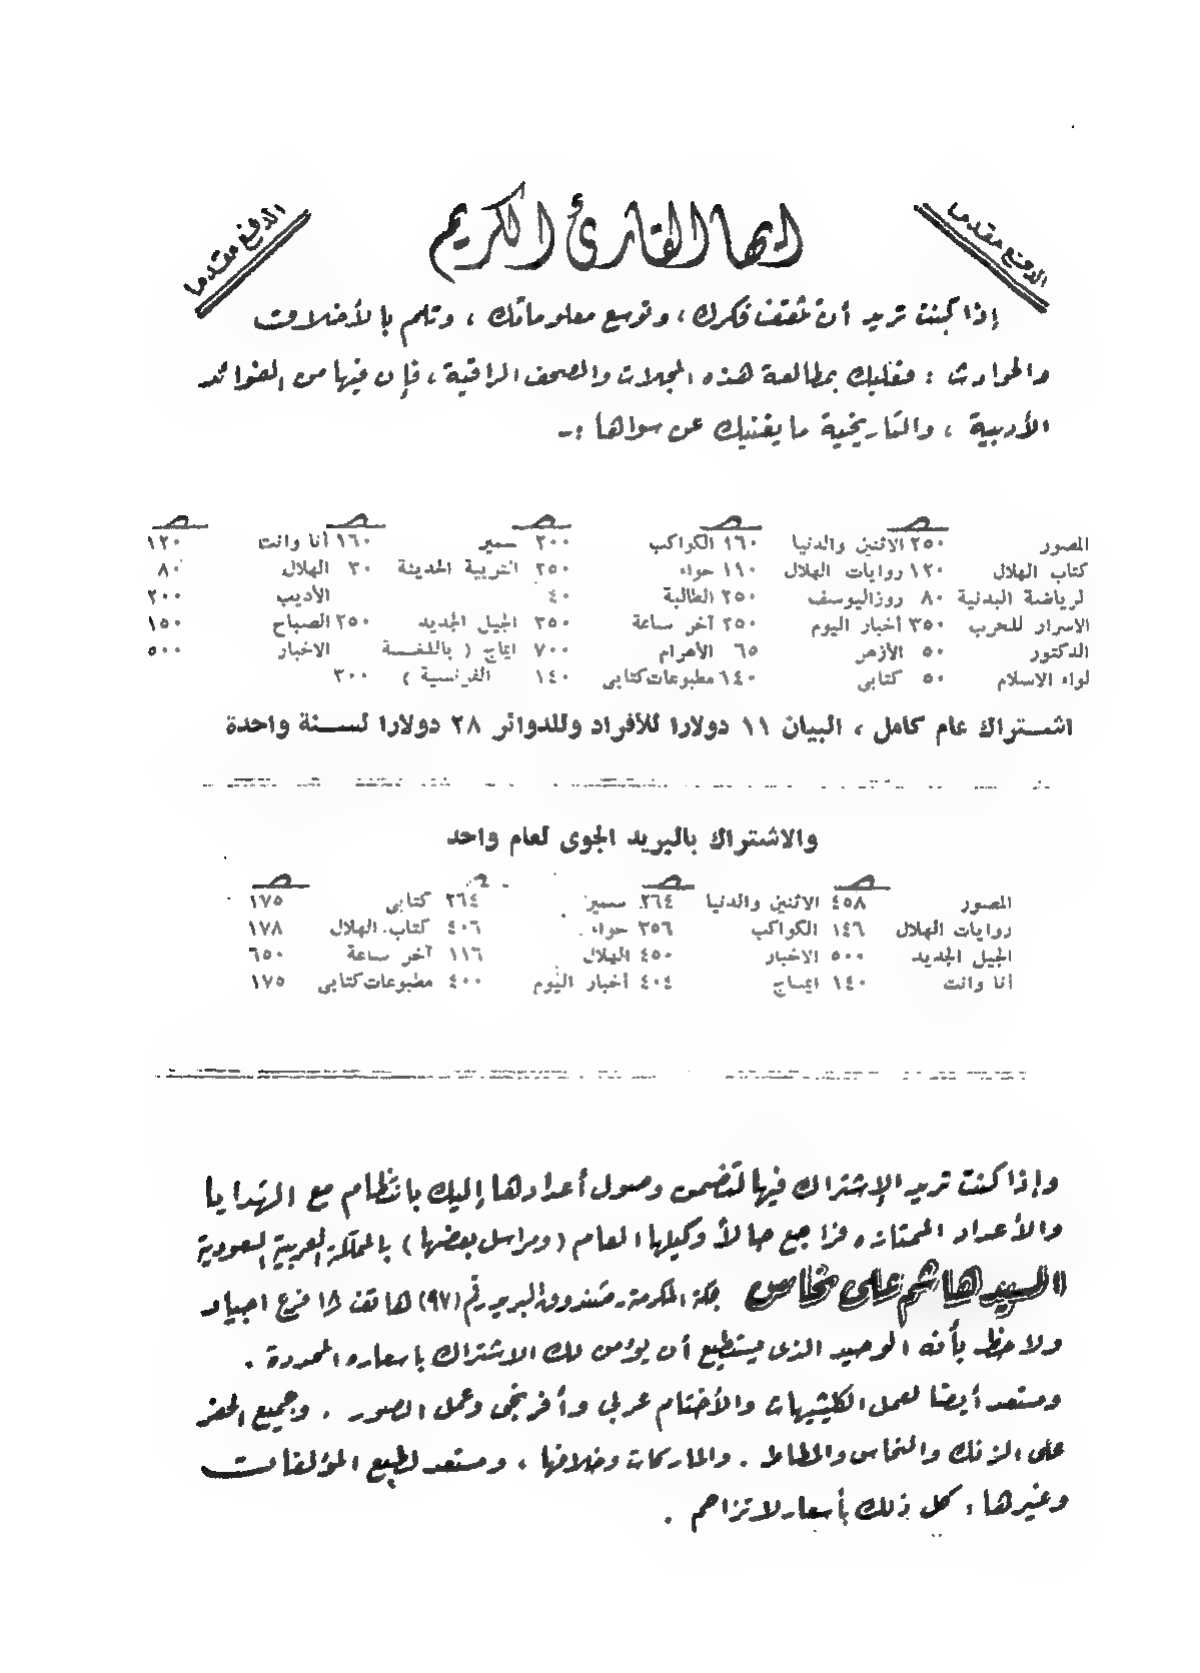 الدفع مقدما
ايها القارئ الكريم
الدفع مقدما
إذا كنت تريد أن تثقف فكرك ، وتوسع معلوماتك ، وتلم بالأخلاق
والحوادث : فعليك بمطالعة هذه المجلات والصحف الراقية ، فإن فيها من الفوائد
الأدبية ، والتاريخية ما يغنيك عن سواها :-
المصور ٢٥٠ الاثنين والدنيا ١٦٠ الكواكب ٢٠٠ سمير ١٦٠ أنا وانت ١٢٠
كتاب الهلال ١٢٠ روايات الهلال ١١٠ حواء ٢٥٠ التربية الحديثة ٣٠ الهلال ٨٠
لرياضة البدنية ٨٠ روزاليوسف ٢٥٠ الطالبة ٤٠ الأديب ٢٠٠
الاسرار للحرب ٣٥٠ أخبار اليوم ٢٥٠ آخر ساعة ٣٥٠ الجيل الجديد ٢٥٠ الصباح ١٥٠
الدكتور ٥٠ الأزهر ٦٥ الأهرام ٧٠٠ ايماج ( باللغة الاخبار ٥٠٠
لواء الاسلام ٥٠ كتابى ١٤٠ مطبوعات كتابى ١٤٠ الفرنسية ) ٣٠٠
اشتراك عام كامل ، البيان ١١ دولارا للأفراد وللدوائر ٢٨ دولارا لسنة واحدة
والاشتراك بالبريد الجوى لعام واحد
المصور ٤٥٨ الاثنين والدنيا ٢٦٤ سمير ٢٦٤ كتابى ١٧٥
روايات الهلال ١٤٦ الكواكب ٣٥٦ حواء ٤٠٦ كتاب الهلال ١٧٨
الجيل الجديد ٥٠٠ الاخبار ٤٥٠ الهلال ١١٦ آخر ساعة ٦٥٠
أنا وانت ١٤٠ ايماج ٤٠٤ أخبار اليوم ٤٠٠ مطبوعات كتابى ١٧٥
وإذا كنت تريد الإشتراك فيها لتضمن وصول أعدادها إليك بانتظام مع الهدايا
والأعداد الممتازه فراجع حالاً وكيلها العام ( ومراسل بعضها ) بالمملكة العربية السعودية
السيد هاشم على نحاس بمكة المكرمة ـ صندوق البريد رقم (٩٧) هاتف ١٨ فرع اجياد
ولاحظ بأنه الوحيد الذى يستطيع أن يؤمن لك الاشتراك باسعاره المحددة .
ومستعد أيضا لعمل الكليشيهات والأختام عربى وأفرنجى وعمل الصور . وجميع الحفر
على الزنك والنحاس والمطاط . والماركات وخلافها ، ومستعد لطبع المؤلفات
وغيرها ، كل ذلك بأسعار لا تزاحم .